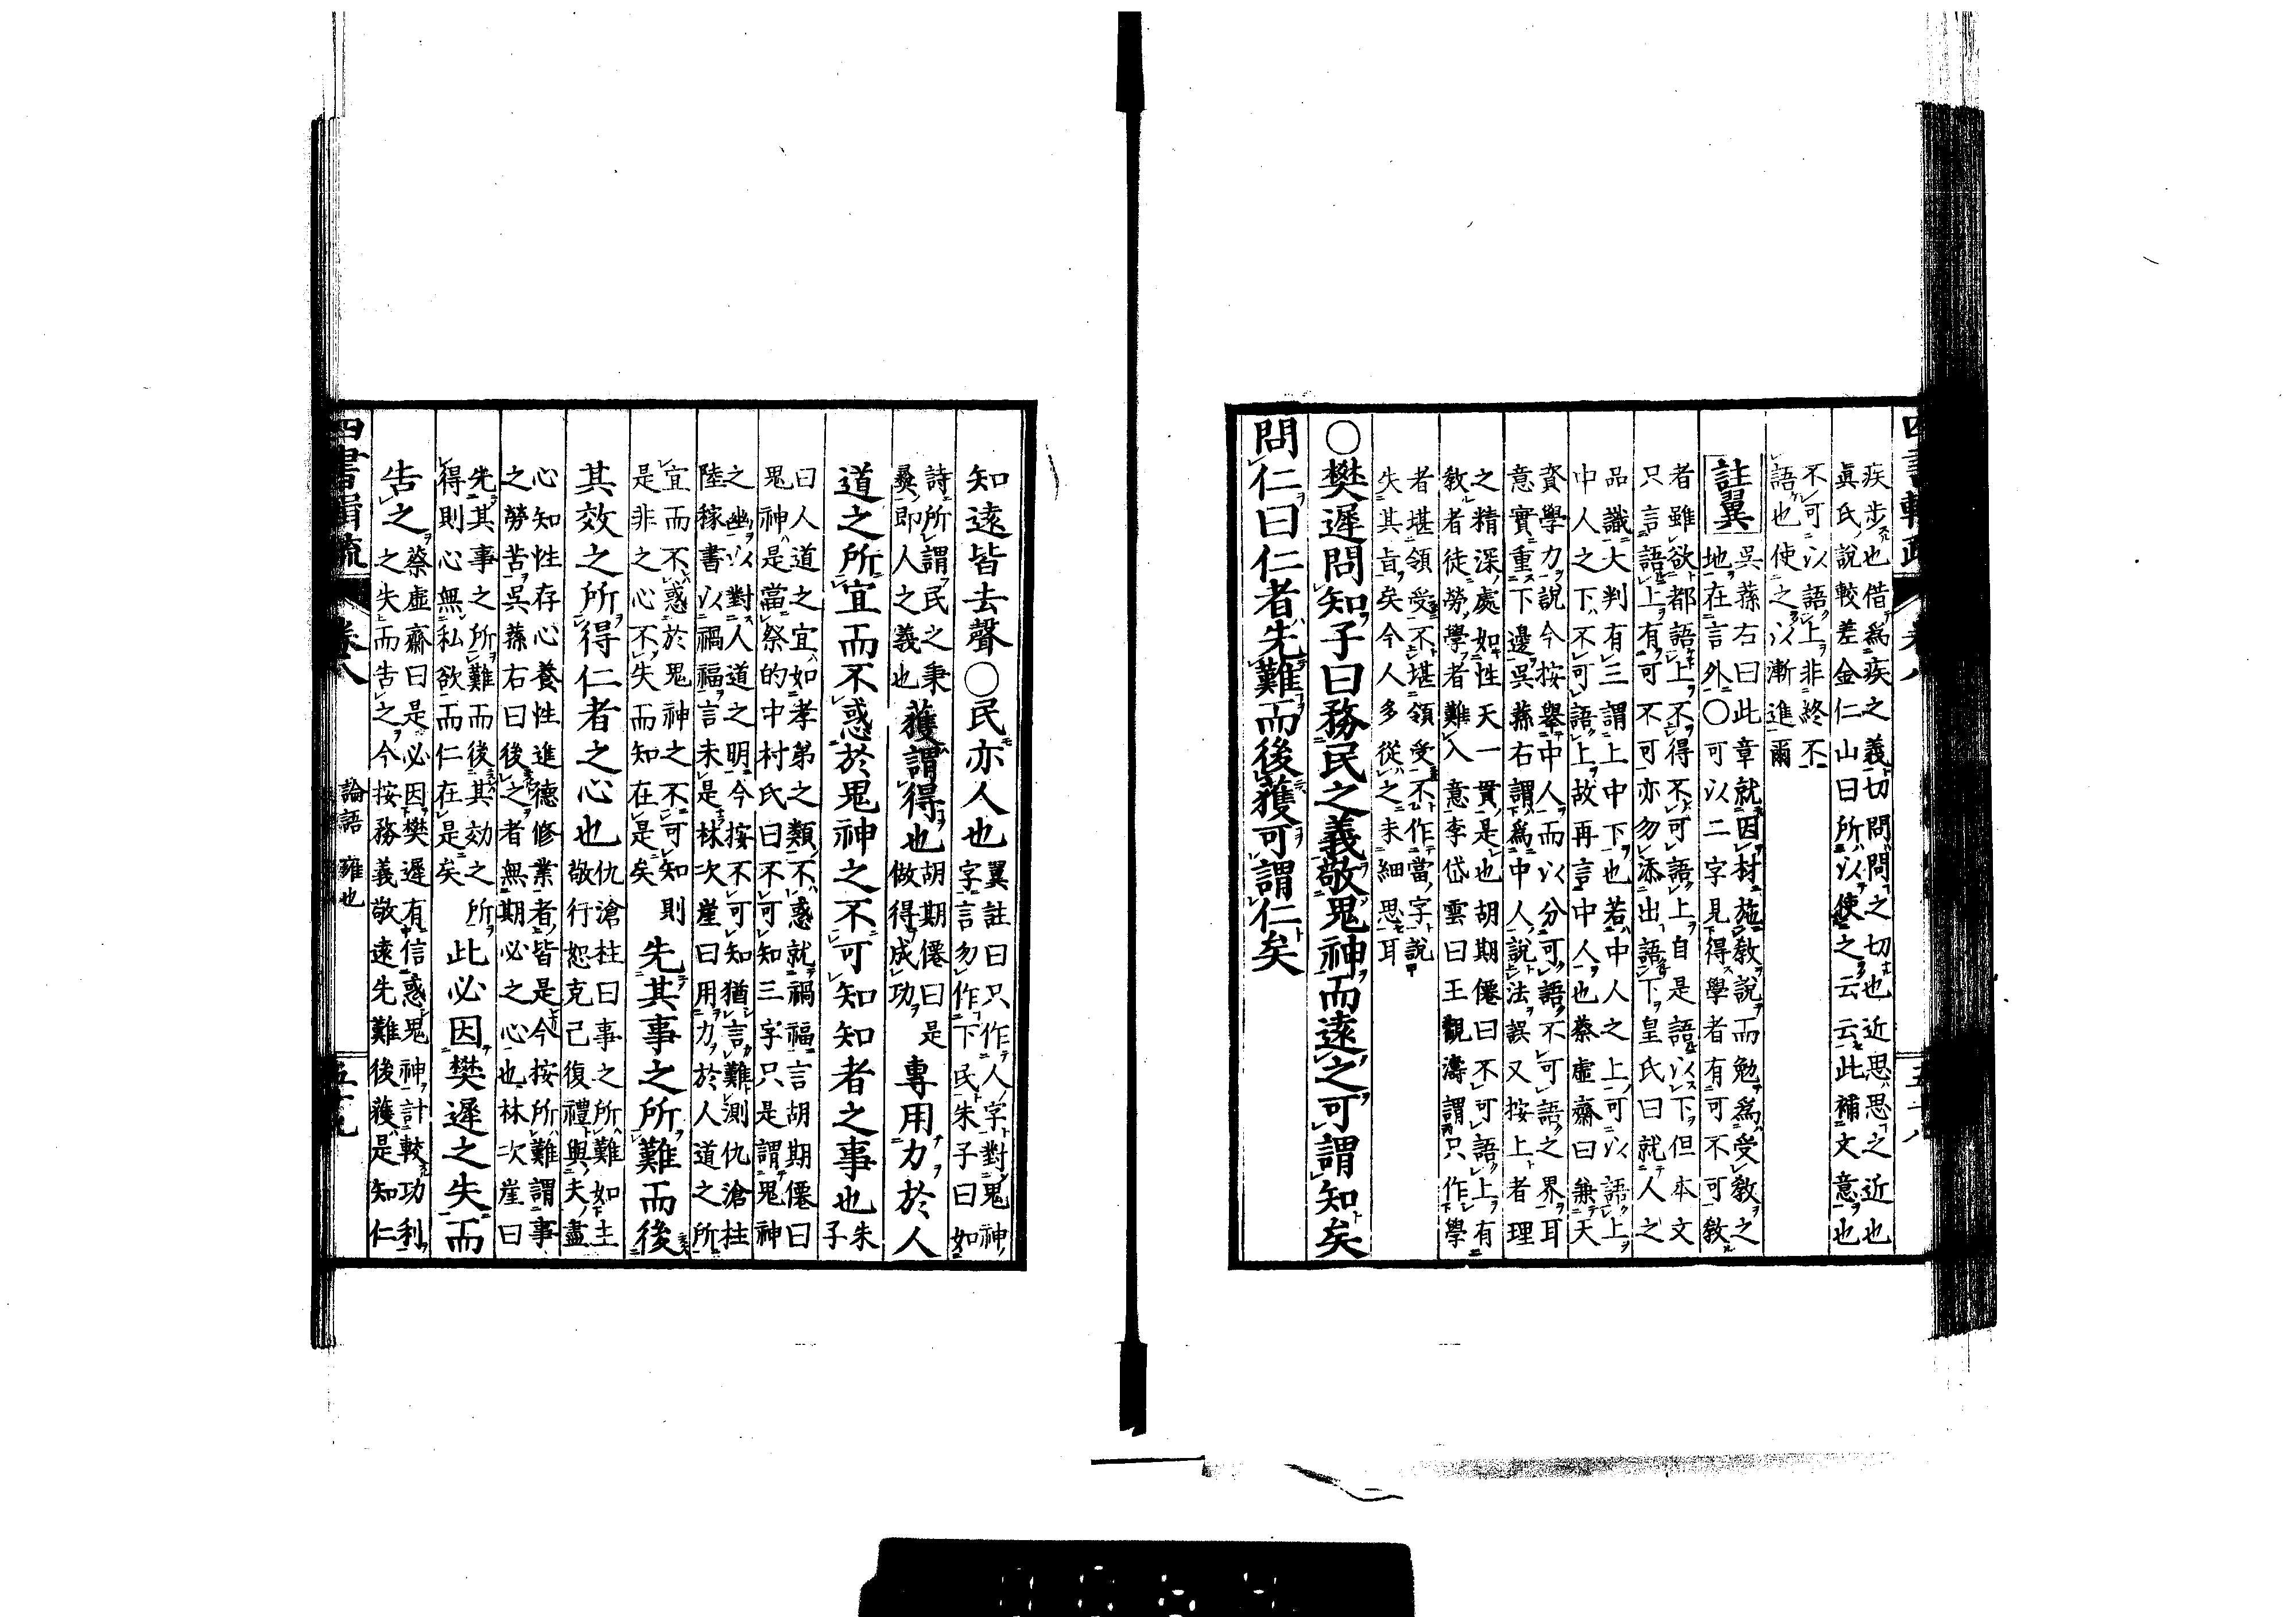 四書輯疏 卷八 五十八
疾步也借爲疾之義切問問之切也近思思之近也
眞氏說較差金仁山曰所以使之云云此補文意也
不可以語上非終不
語也使之以漸進爾
註翼
吳蓀右曰此章就因材施教說而勉爲受教之
地在言外○可以二字見得學者有可不可教
者雖欲都語上不得不可語上自是語以下但本文
只言語上有可不可亦勿添出語下皇氏曰就人之
品識大判有三謂上中下也若中人之上可以語上
中人之下不可語上故再言中人也蔡虛齋曰兼天
資學力說今按舉中人而以分可語不可語之界耳
意實重下邊吳蓀右謂爲中人說法誤又按上者理
之精深處如性天一貫是也胡期僊曰不可語上有
教者徒勞學者難入意李岱雲曰王觀濤謂只作學
者堪領受不堪領受不作當字說
失其旨矣今人多從之未細思耳
○樊遲問知子曰務民之義敬鬼神而遠之可謂知矣
問仁曰仁者先難而後獲可謂仁矣
知遠皆去聲○民亦人也
翼註曰只作人字對鬼神
字言勿作下民朱子曰如
詩所謂民之秉
彝即人之義也
獲謂得也
胡期僊曰是
做得成功
專用力於人
道之所宜而不惑於鬼神之不可知知者之事也
朱
子
曰人道之宜如孝弟之類不惑就禍福言胡期僊曰
鬼神是當祭的中村氏曰不可知三字只是謂鬼神
之幽以對人道之明今按不可知猶言難測仇滄柱
陸稼書以禍福言未是林次崖曰用力於人道之所
宜而不惑於鬼神之不可知則
是非之心不失而知在是矣
先其事之所難而後
其效之所得仁者之心也
仇滄柱曰事之所難如主
敬行恕克己復禮與夫盡
心知性存心養性進德修業者皆是今按所難謂事
之勞苦吳蓀右曰後之者無期必之心也林次崖曰
先其事之所難而後其効之所
得則心無私欲而仁在是矣
此必因樊遲之失而
告之
蔡虛齋曰是必因樊遲有信惑鬼神計較功利
之失而告之今按務義敬遠先難後獲是知仁
四書輯疏 卷八 論語 雍也 五十九